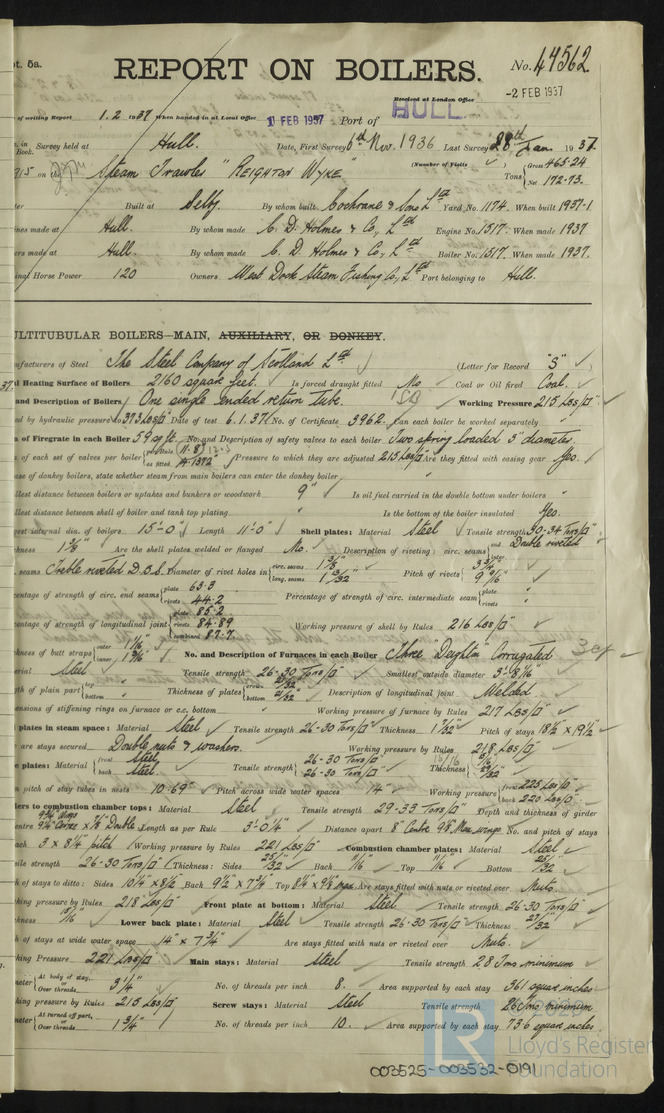 pt. 5a.
REPORT ON BOILERS.
No. 44562
Received at London Office
-2 FEB 1937
of writing Report 1.2 1937 When handed in at Local Office 1 FEB 1937 Port of HULL
in Book. Survey held at Hull. Date, First Survey 6th Nov. 1936 Last Survey 28th Jan 1937
on the Steam Trawler "REIGHTON WYKE" (Number of Visits Tons Gross 465.24 Net 172.73.
Built at Selby. By whom built Cochrane & Sons Ltd Yard No. 1174. When built 1937-1
ines made at Hull. By whom made C. D. Holmes & Co, Ltd Engine No. 1517. When made 1937
ers made at Hull. By whom made C. D. Holmes & Co, Ltd Boiler No. 1517. When made 1937.
nal Horse Power 120 Owners West Dock Steam Fishing Co, Ltd Port belonging to Hull.
ULTITUBULAR BOILERS—MAIN, AUXILIARY, OR DONKEY.
nufacturers of Steel The Steel Company of Scotland Ltd (Letter for Record "S"
l Heating Surface of Boilers 2160 square feet. Is forced draught fitted No Coal or Oil fired Coal.
and Description of Boilers One single ended return tube. Working Pressure 215 Lbs/□"
ed by hydraulic pressure to 373 Lbs/□" Date of test 6.1.37 No. of Certificate 3962. Can each boiler be worked separately
of Firegrate in each Boiler 59 sq ft. No. and Description of safety valves to each boiler Two spring loaded 3" diameter.
of each set of valves per boiler per Rule 11.8 as fitted Pressure to which they are adjusted 215 Lbs/□" Are they fitted with easing gear Yes.
ase of donkey boilers, state whether steam from main boilers can enter the donkey boiler
llest distance between boilers or uptakes and bunkers or woodwork 9" Is oil fuel carried in the double bottom under boilers
llest distance between shell of boiler and tank top plating Is the bottom of the boiler insulated Yes.
gest internal dia. of boilers 15'-0" Length 11'-0" Shell plates: Material Steel Tensile strength 30-34 Tons/□"
kness 1 3/8" Are the shell plates welded or flanged No. Description of riveting: circ. seams end Double riveted inter.
seams Treble riveted D.B.S. Diameter of rivet holes in circ. seams 1 3/8" long. seams 1 13/32" Pitch of rivets 3 3/4" 9 9/16"
centage of strength of circ. end seams plate 63.3 rivets 44.2 Percentage of strength of circ. intermediate seam plate rivets
centage of strength of longitudinal joint plate 85.2 rivets 84.89 combined 87.7 Working pressure of shell by Rules 216 Lbs/□"
kness of butt straps outer 1 1/16" inner 1 3/16" No. and Description of Furnaces in each Boiler Three "Deighton" Corrugated
erial Steel Tensile strength 26-30 Tons/□" Smallest outside diameter 3'-8 1/16"
gth of plain part top bottom Thickness of plates crown 21/32" bottom 21/32" Description of longitudinal joint Welded
ensions of stiffening rings on furnace or c.c. bottom Working pressure of furnace by Rules 217 Lbs/□"
plates in steam space: Material Steel Tensile strength 26-30 Tons/□" Thickness 1 7/32" Pitch of stays 18 1/2" x 19 1/2"
are stays secured Double nuts & washers. Working pressure by Rules 218 Lbs/□"
e plates: Material front Steel back Steel. Tensile strength 26-30 Tons/□" 26-30 Tons/□" Thickness 15/16" 29/32"
n pitch of stay tubes in nests 10.69" Pitch across wide water spaces 14" Working pressure front 225 Lbs/□" back 220 Lbs/□"
ers to combustion chamber tops: Material Steel Tensile strength 29-33 Tons/□" Depth and thickness of girder
entre 9 1/4" Centre x 7/8" Double Length as per Rule 3'-0 1/4" Distance apart 8" Centre 9 5/8" Max wings No. and pitch of stays
ach 3 x 8 1/4" pitch Working pressure by Rules 221 Lbs/□" Combustion chamber plates: Material Steel
sile strength 26-30 Tons/□" Thickness: Sides 25/32" Back 11/16" Top 11/16" Bottom 25/32"
h of stays to ditto: Sides 10 1/4" x 8 1/2" Back 9 1/2" x 7 3/4" Top 8 1/4" x 9 5/8" max Are stays fitted with nuts or riveted over Nuts.
king pressure by Rules 218 Lbs/□" Front plate at bottom: Material Steel. Tensile strength 26-30 Tons/□"
kness 15/16" Lower back plate: Material Steel Tensile strength 26-30 Tons/□" Thickness 27/32"
h of stays at wide water space 14" x 7 3/4" Are stays fitted with nuts or riveted over Nuts.
king Pressure 221 Lbs/□" Main stays: Material Steel Tensile strength 28 Tons minimum
meter At body of stay, or Over threads 3 1/4" No. of threads per inch 8. Area supported by each stay 361 square inches
king pressure by Rules 215 Lbs/□" Screw stays: Material Steel Tensile strength 26 Tons minimum
meter At turned off part, or Over threads 1 3/4" No. of threads per inch 10. Area supported by each stay 73.6 square inches.
© 2020
LR Lloyd's Register Foundation
003525-003532-0191